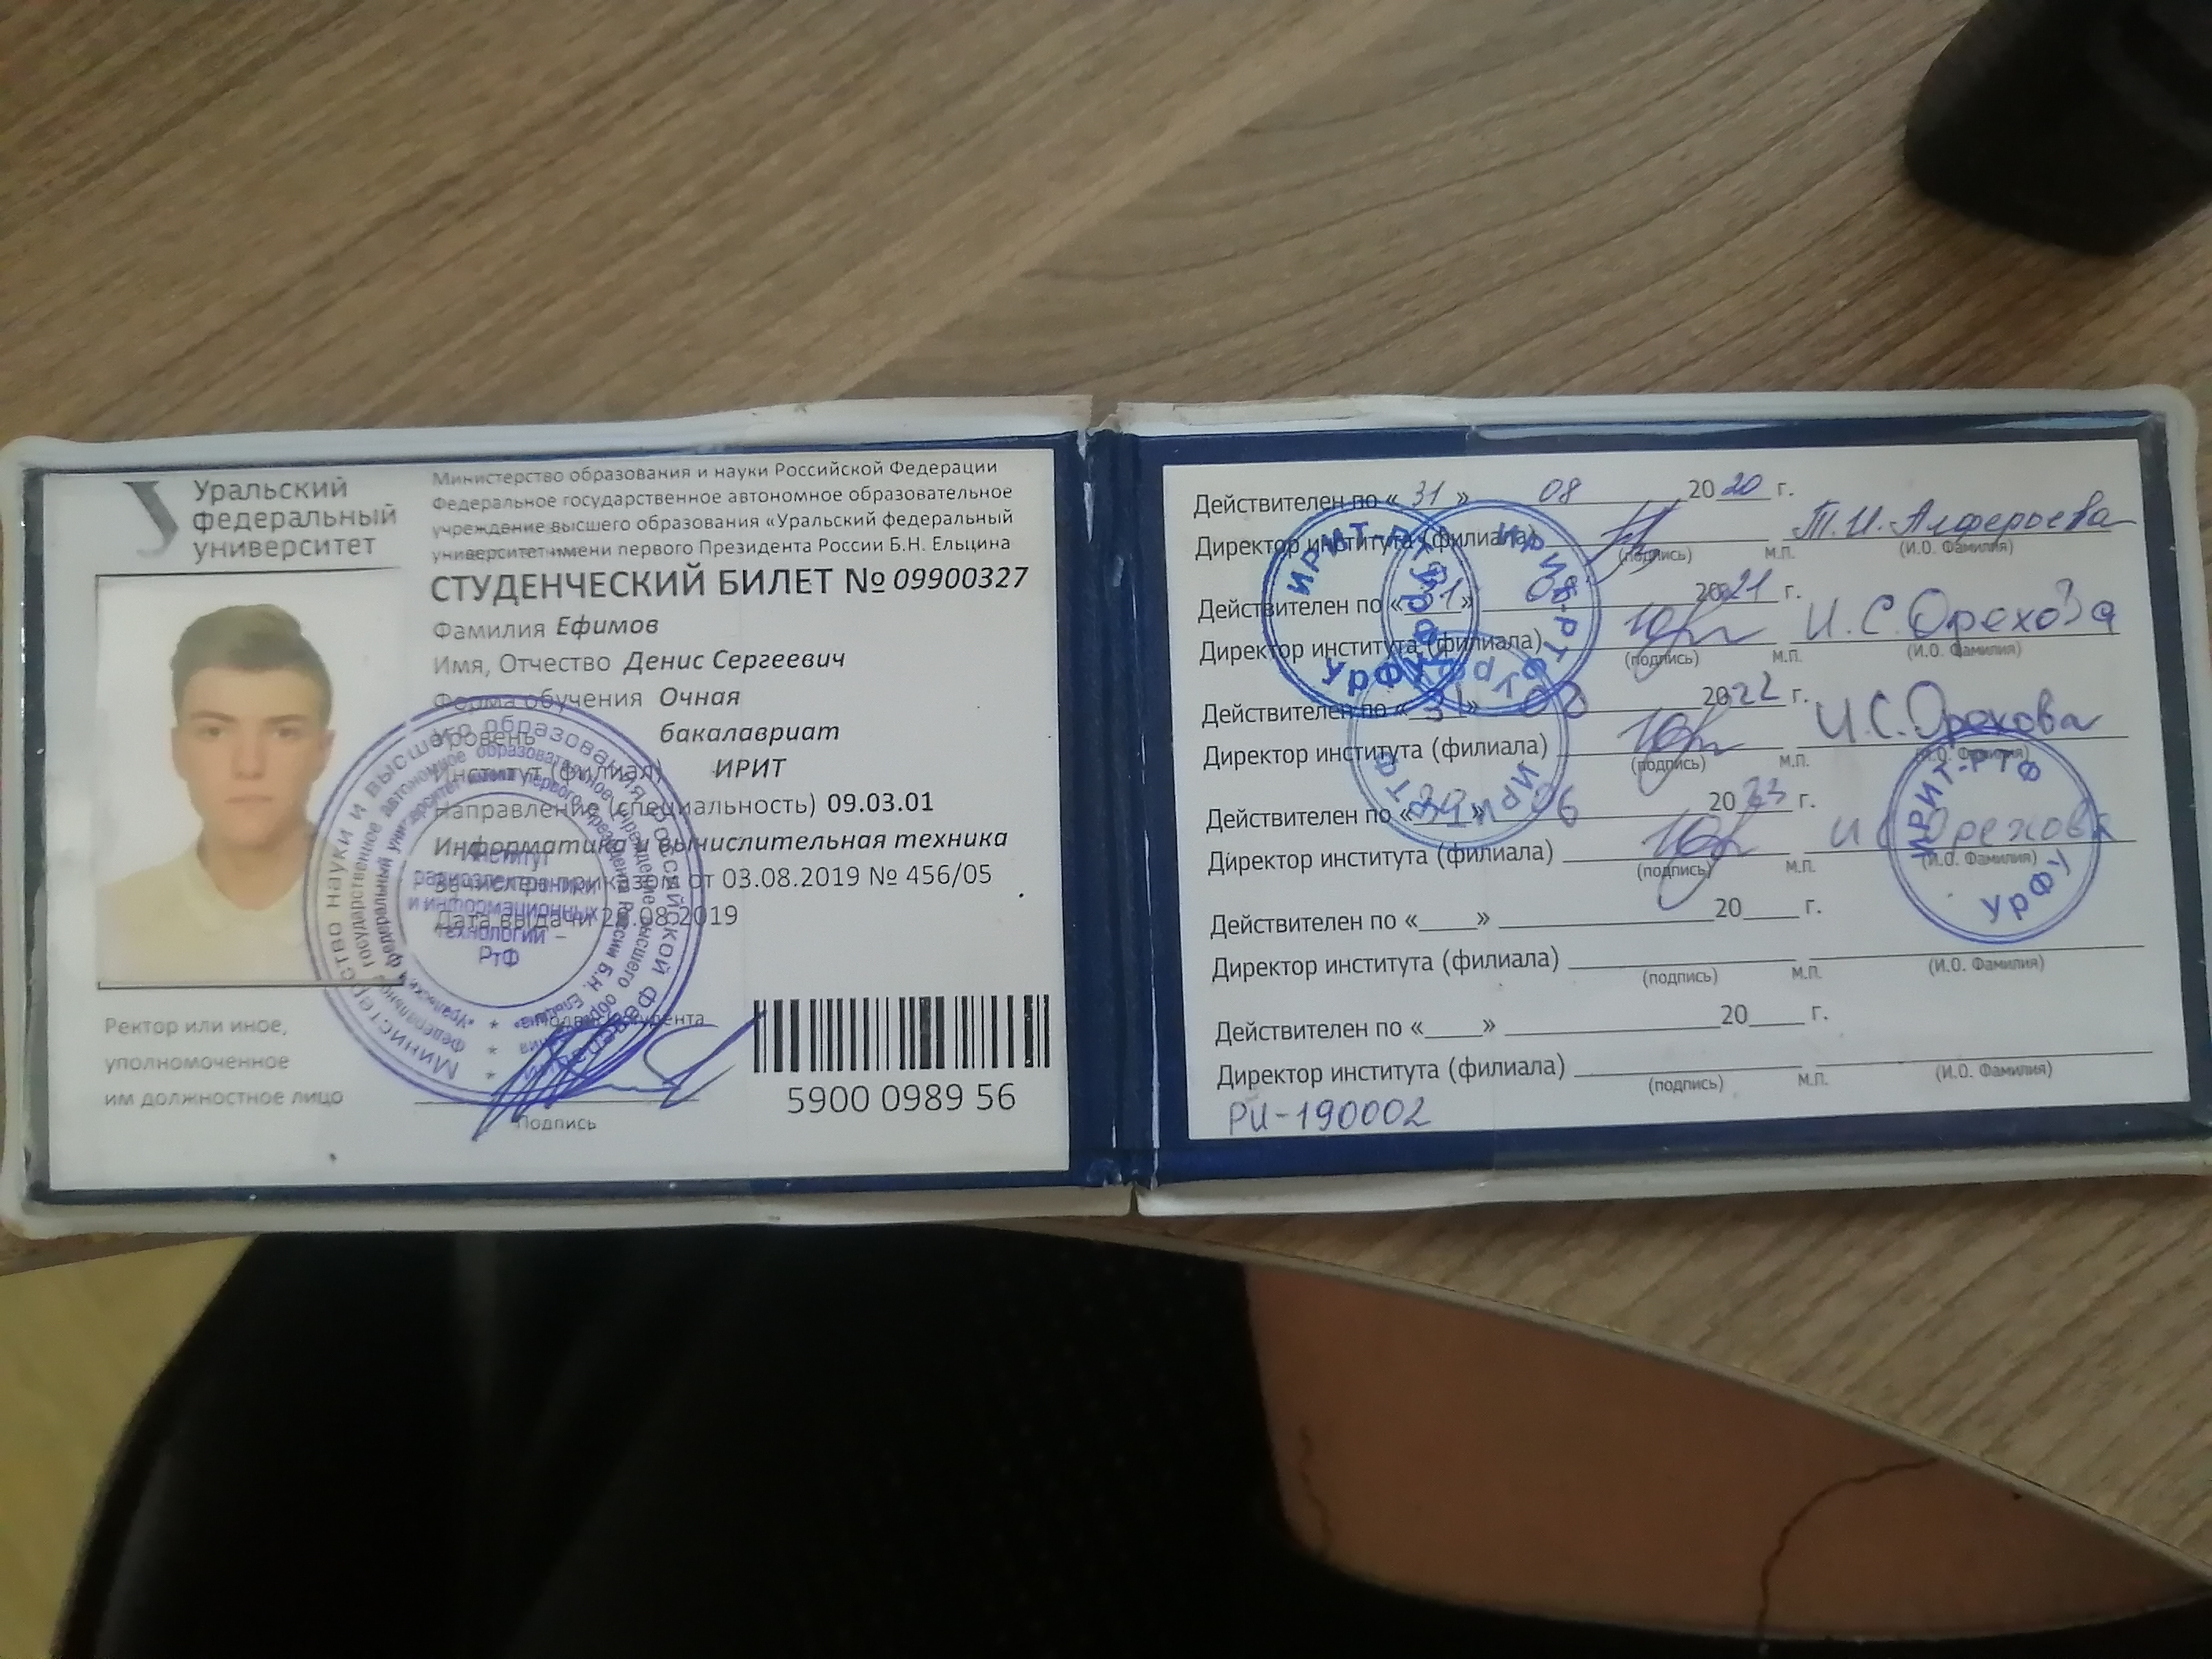 Уральский
федеральный
университет
Министерство образования и науки Российской Федерации
Федеральное государственное автономное образовательное
учреждение высшего образования «Уральский федеральный
университет имени первого Президента России Б.Н. Ельцина
СТУДЕНЧЕСКИЙ БИЛЕТ № 09900327
Фамилия Ефимов
Имя, Отчество Денис Сергеевич
Форма обучения Очная
Уровень бакалавриат
Институт (филиал) ИРИТ
Направление (специальность) 09.03.01
Информатика и вычислительная техника
Зачислен приказом от 03.08.2019 № 456/05
Дата выдачи 08.2019
Институт
радиоэлектроники
и информационных
технологий –
РтФ
Ректор или иное,
уполномоченное
им должностное лицо
Подпись студента
Подпись
5900 0989 56
Действителен по « 31 » 08 2020 г.
Директор института (филиала) Т.И. Алферьева
(подпись) М.П. (И.О. Фамилия)
Действителен по « 31 » 08 2021 г.
Директор института (филиала) И.С. Орехова
(подпись) М.П. (И.О. Фамилия)
Действителен по « 31 » 08 2022 г.
Директор института (филиала) И.С. Орехова
(подпись) М.П. (И.О. Фамилия)
Действителен по « » 06 2023 г.
Директор института (филиала) И.С. Орехова
(подпись) М.П. (И.О. Фамилия)
Действителен по «____» 20____ г.
Директор института (филиала)
(подпись) М.П. (И.О. Фамилия)
Действителен по «____» 20____ г.
Директор института (филиала)
(подпись) М.П. (И.О. Фамилия)
РИ-190002
ИРИТ-РТФ
УрФУ
ИРИТ-РТФ
УрФУ
ИРИТ-РТФ
УрФУ
ИРИТ-РТФ
УрФУ